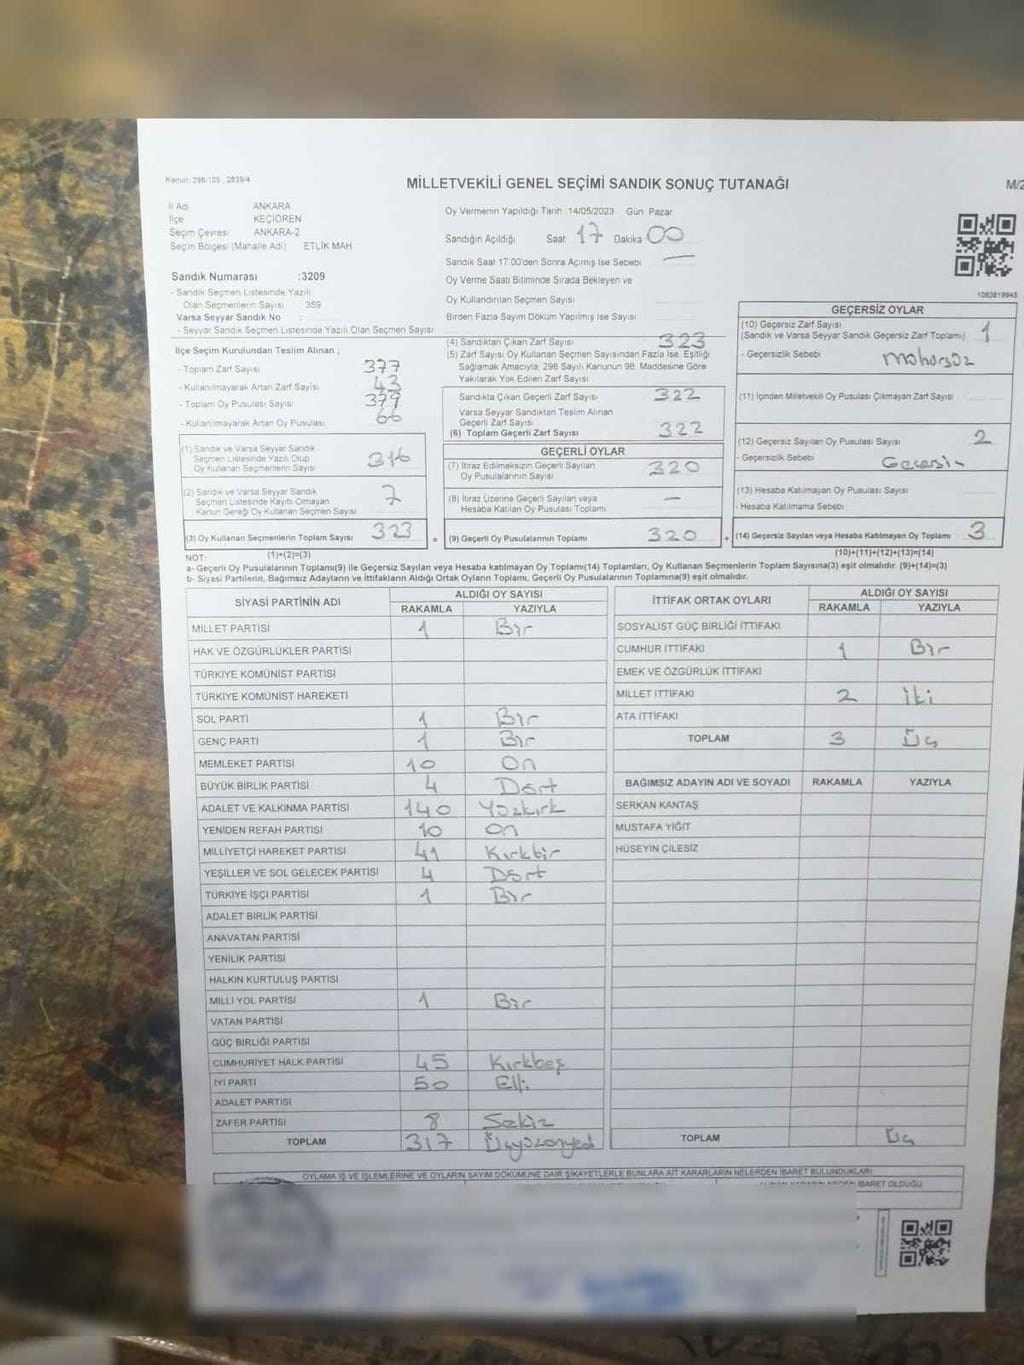 Kanun: 298/105 2839/4
MİLLETVEKİLİ GENEL SEÇİMİ SANDIK SONUÇ TUTANAĞI
M/2
İl Adı ANKARA
İlçe KEÇİÖREN
Seçim Çevresi ANKARA-2
Seçim Bölgesi (Mahalle Adı) ETLİK MAH
Sandık Numarası :3209
- Sandık Seçmen Listesinde Yazılı
Olan Seçmenlerin Sayısı 359
Varsa Seyyar Sandık No :
- Seyyar Sandık Seçmen Listesinde Yazılı Olan Seçmen Sayısı
Oy Vermenin Yapıldığı Tarih :14/05/2023 Gün: Pazar
Sandığın Açıldığı Saat 17 Dakika 00
Sandık Saat 17.00'den Sonra Açımış İse Sebebi —
Oy Verme Saati Bitiminde Sırada Bekleyen ve
Oy Kullandırılan Seçmen Sayısı
Birden Fazla Sayım Döküm Yapılmış İse Sayısı
1083819945
İlçe Seçim Kurulundan Teslim Alınan ;
- Toplam Zarf Sayısı 377
- Kullanılmayarak Artan Zarf Sayısı 43
- Toplam Oy Pusulası Sayısı 379
- Kullanılmayarak Artan Oy Pusulası 66
(1) Sandık ve Varsa Seyyar Sandık
Seçmen Listesinde Yazılı Olup
Oy Kullanan Seçmenlerin Sayısı 316
(2) Sandık ve Varsa Seyyar Sandık
Seçmen Listesinde Kayıtlı Olmayan
Kanun Gereği Oy Kullanan Seçmen Sayısı 7
(3) Oy Kullanan Seçmenlerin Toplam Sayısı 323 =
(4) Sandıktan Çıkan Zarf Sayısı 323
(5) Zarf Sayısı Oy Kullanan Seçmen Sayısından Fazla İse, Eşitliği
Sağlamak Amacıyla; 298 Sayılı Kanunun 98. Maddesine Göre
Yakılarak Yok Edilen Zarf Sayısı
Sandıkta Çıkan Geçerli Zarf Sayısı 322
Varsa Seyyar Sandıktan Teslim Alınan
Geçerli Zarf Sayısı
(6) Toplam Geçerli Zarf Sayısı 322
GEÇERLİ OYLAR
(7) İtiraz Edilmeksizin Geçerli Sayılan
Oy Pusulalarının Sayısı 320
(8) İtiraz Üzerine Geçerli Sayılan veya
Hesaba Katılan Oy Pusulası Toplamı —
(9) Geçerli Oy Pusulalarının Toplamı 320 +
GEÇERSİZ OYLAR
(10) Geçersiz Zarf Sayısı
(Sandık ve Varsa Seyyar Sandık Geçersiz Zarf Toplamı) 1
- Geçersizlik Sebebi Mühürsüz
(11) İçinden Milletvekili Oy Pusulası Çıkmayan Zarf Sayısı
(12) Geçersiz Sayılan Oy Pusulası Sayısı 2
- Geçersizlik Sebebi
(13) Hesaba Katılmayan Oy Pusulası Sayısı
- Hesaba Katılmama Sebebi
(14) Geçersiz Sayılan veya Hesaba Katılmayan Oy Toplamı 3
NOT: (1)+(2)=(3)
(10)+(11)+(12)+(13)=(14)
a- Geçerli Oy Pusulalarının Toplamı(9) ile Geçersiz Sayılan veya Hesaba katılmayan Oy Toplamı(14) Toplamları, Oy Kullanan Seçmenlerin Toplam Sayısına(3) eşit olmalıdır. (9)+(14)=(3)
b- Siyasi Partilerin, Bağımsız Adayların ve İttifakların Aldığı Ortak Oyların Toplamı, Geçerli Oy Pusulalarının Toplamına(9) eşit olmalıdır.
SİYASİ PARTİNİN ADI ALDIĞI OY SAYISI
RAKAMLA YAZIYLA
MİLLET PARTİSİ 1 Bir
HAK VE ÖZGÜRLÜKLER PARTİSİ
TÜRKİYE KOMÜNİST PARTİSİ
TÜRKİYE KOMÜNİST HAREKETİ
SOL PARTİ 1 Bir
GENÇ PARTİ 1 Bir
MEMLEKET PARTİSİ 10 On
BÜYÜK BİRLİK PARTİSİ 4 Dört
ADALET VE KALKINMA PARTİSİ 140 Yüzkırk
YENİDEN REFAH PARTİSİ 10 On
MİLLİYETÇİ HAREKET PARTİSİ 41 Kırkbir
YEŞİLLER VE SOL GELECEK PARTİSİ 4 Dört
TÜRKİYE İŞÇİ PARTİSİ 1 Bir
ADALET BİRLİK PARTİSİ
ANAVATAN PARTİSİ
YENİLİK PARTİSİ
HALKIN KURTULUŞ PARTİSİ
MİLLİ YOL PARTİSİ 1 Bir
VATAN PARTİSİ
GÜÇ BİRLİĞİ PARTİSİ
CUMHURİYET HALK PARTİSİ 45 Kırkbeş
İYİ PARTİ 50 Elli
ADALET PARTİSİ
ZAFER PARTİSİ 8 Sekiz
TOPLAM 317 Üçyüzonyedi
İTTİFAK ORTAK OYLARI ALDIĞI OY SAYISI
RAKAMLA YAZIYLA
SOSYALİST GÜÇ BİRLİĞİ İTTİFAKI
CUMHUR İTTİFAKI 1 Bir
EMEK VE ÖZGÜRLÜK İTTİFAKI
MİLLET İTTİFAKI 2 İki
ATA İTTİFAKI
TOPLAM 3 Üç
BAĞIMSIZ ADAYIN ADI VE SOYADI RAKAMLA YAZIYLA
SERKAN KANTAŞ
MUSTAFA YİĞİT
HÜSEYİN ÇİLESİZ
TOPLAM Üç
OYLAMA İŞ VE İŞLEMLERİNE VE OYLARIN SAYIM DÖKÜMÜNE DAİR ŞİKAYETLERLE BUNLARA AİT KARARLARIN NELERDEN İBARET BULUNDUKLARI
İBARET OLDUĞU